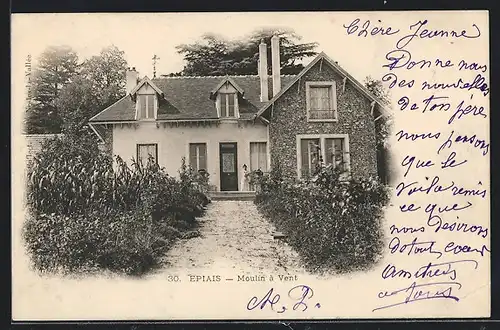 Chère Jeanne
Donne nous
des nouvelles
de ton père
nous pensons
que le
voilà remis
ce que
nous désirons
de tout cœur
amitiés
à tous
30. EPIAIS — Moulin à Vent